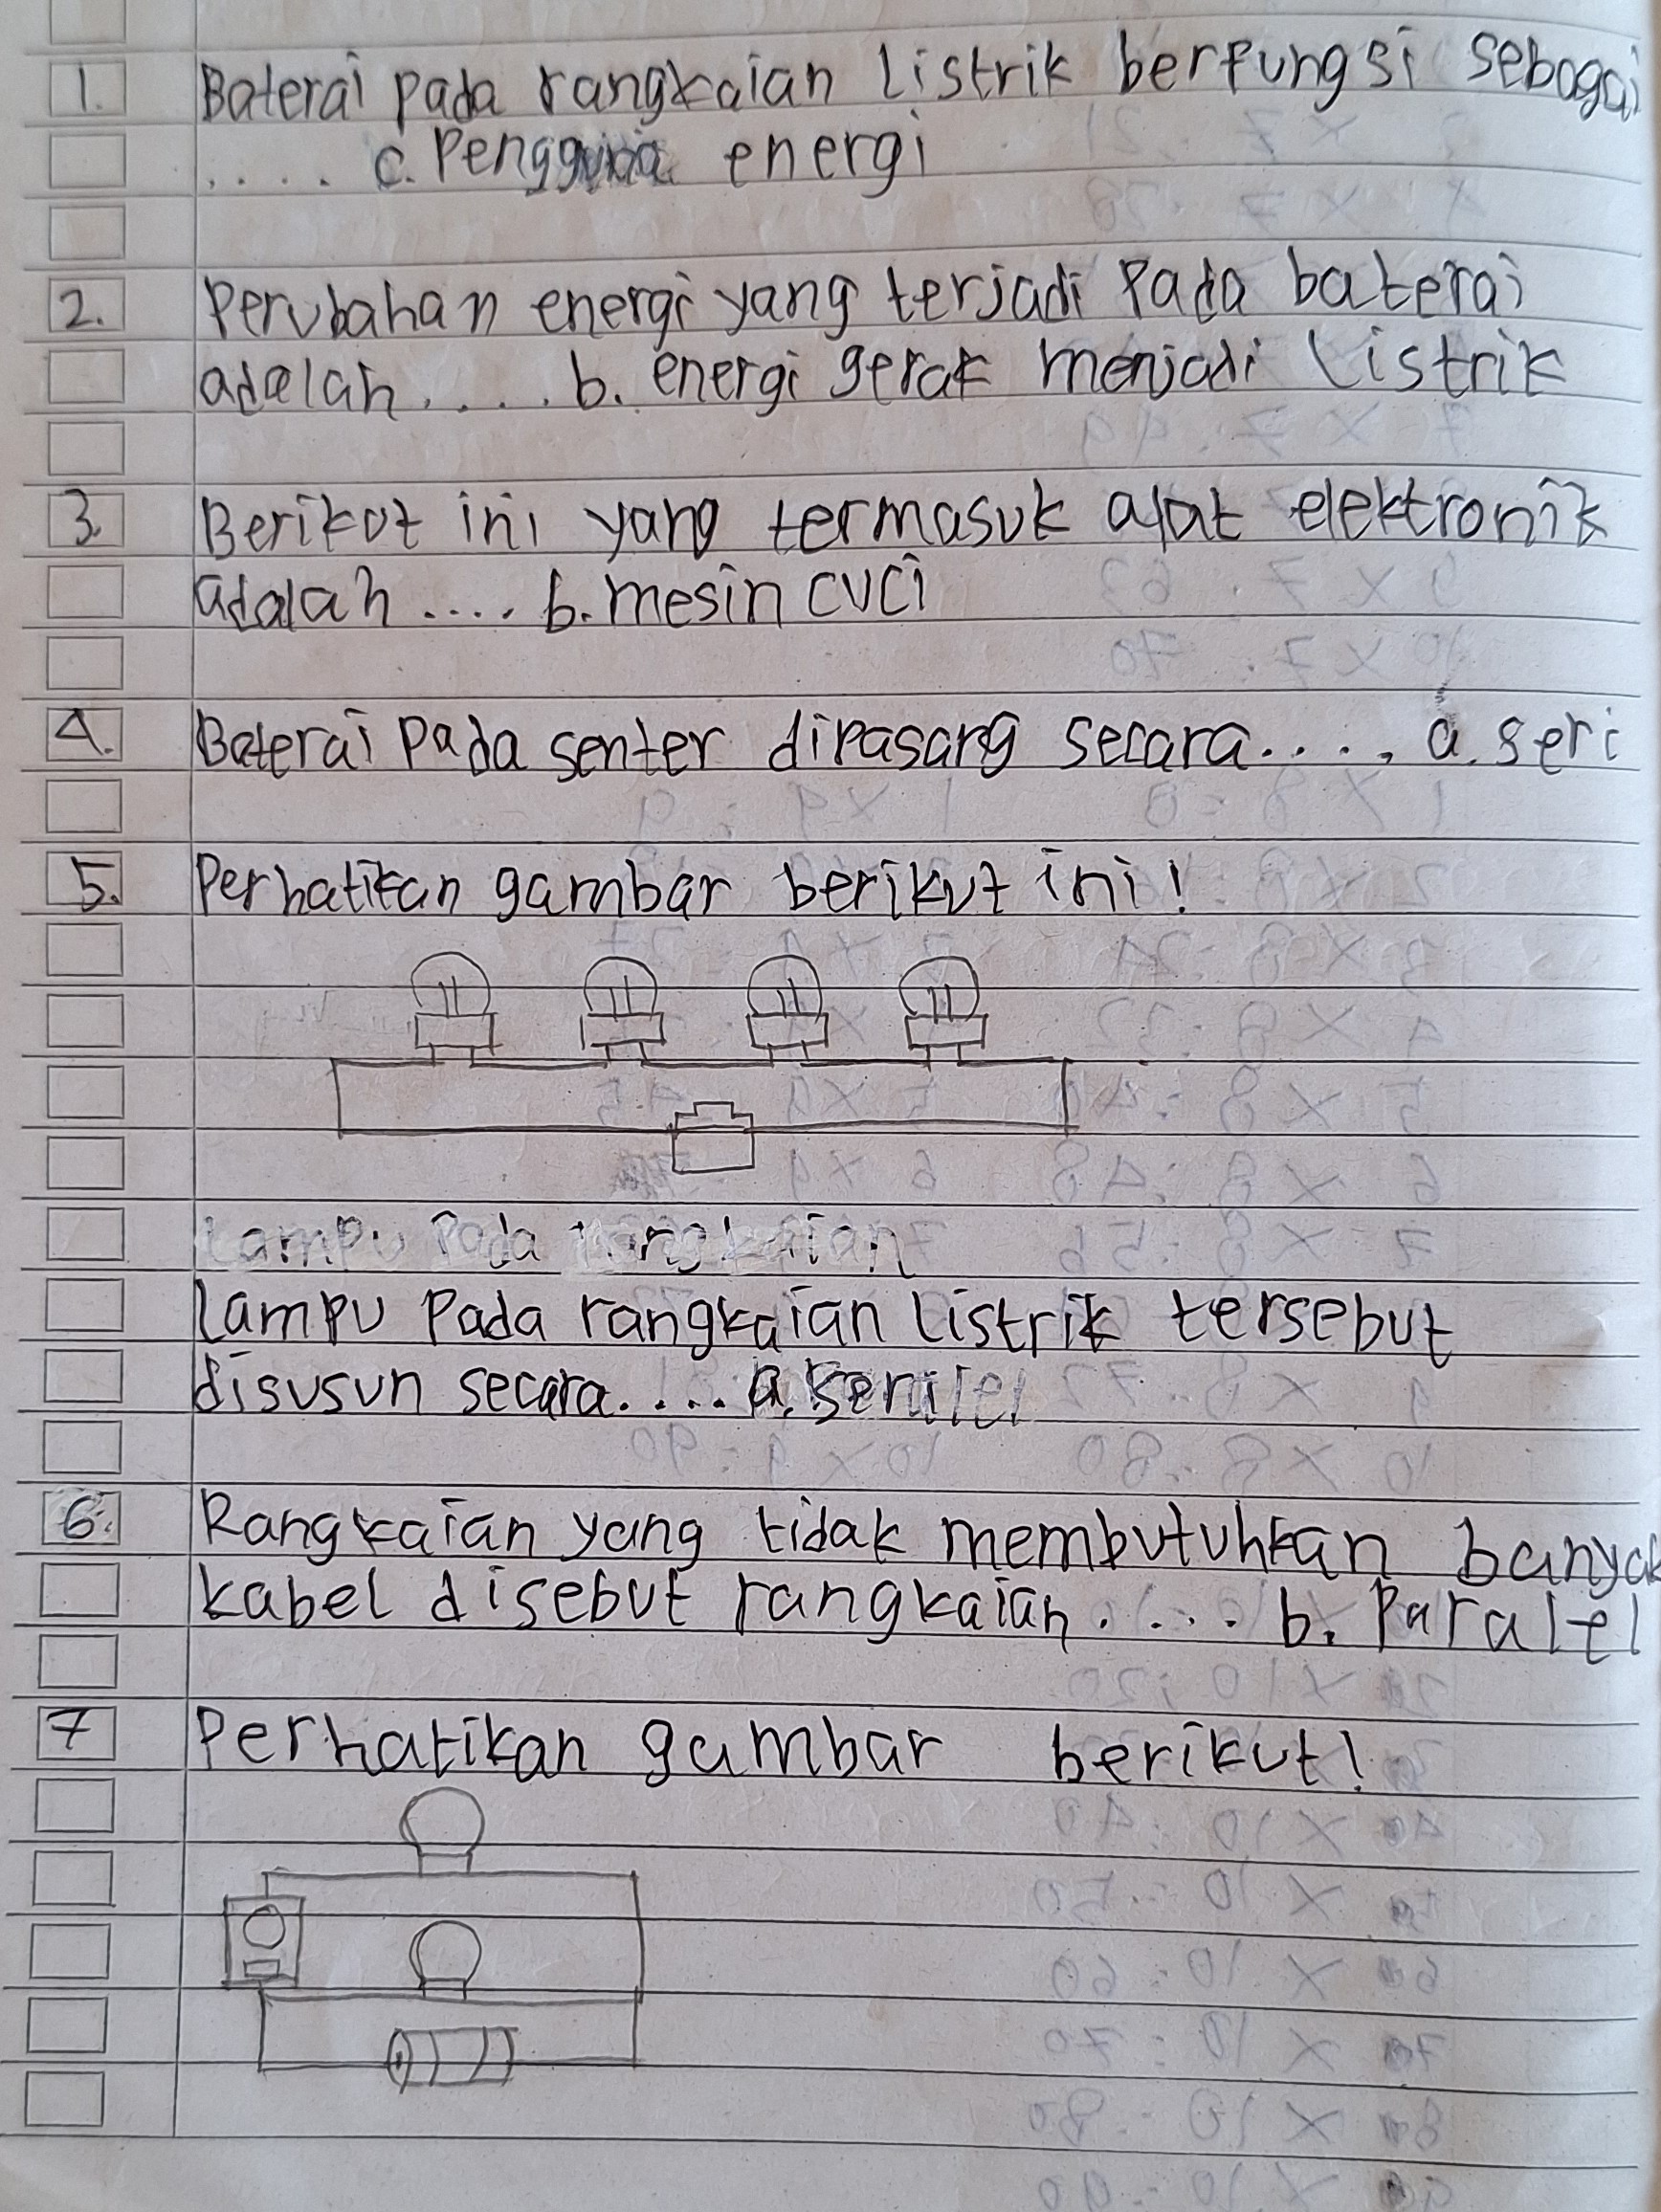 1. Baterai pada rangkaian listrik berfungsi sebagai
.... c. Pengguna energi
2. Perubahan energi yang terjadi pada baterai
adalah .... b. energi gerak menjadi listrik
3. Berikut ini yang termasuk alat elektronik
adalah .... b. mesin cuci
4. Baterai pada senter dipasang secara .... a. seri
5. Perhatikan gambar berikut ini!
Lampu pada rangkaian
Lampu pada rangkaian listrik tersebut
disusun secara .... a.
6. Rangkaian yang tidak membutuhkan banyak
kabel disebut rangkaian .... b. Paralel
7 Perhatikan gambar berikut!